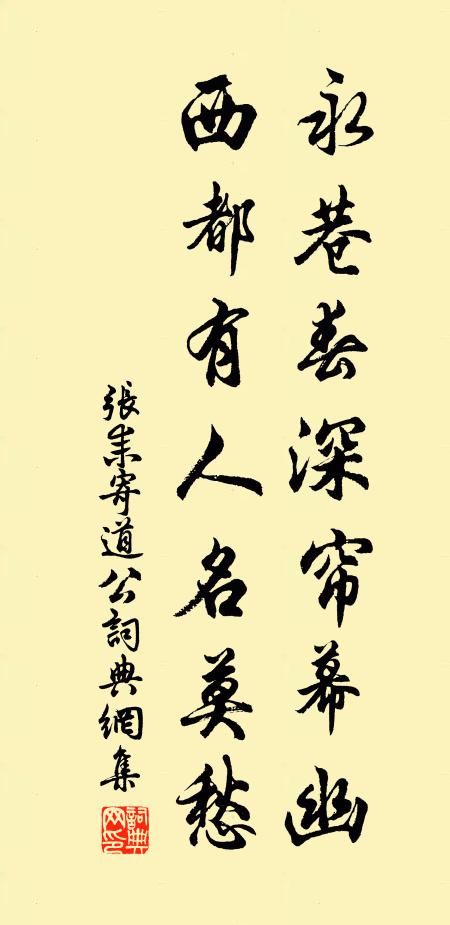 永巷春深帘幕幽
西都有人名莫愁
張耒寄道公詞典網集
詞典網印